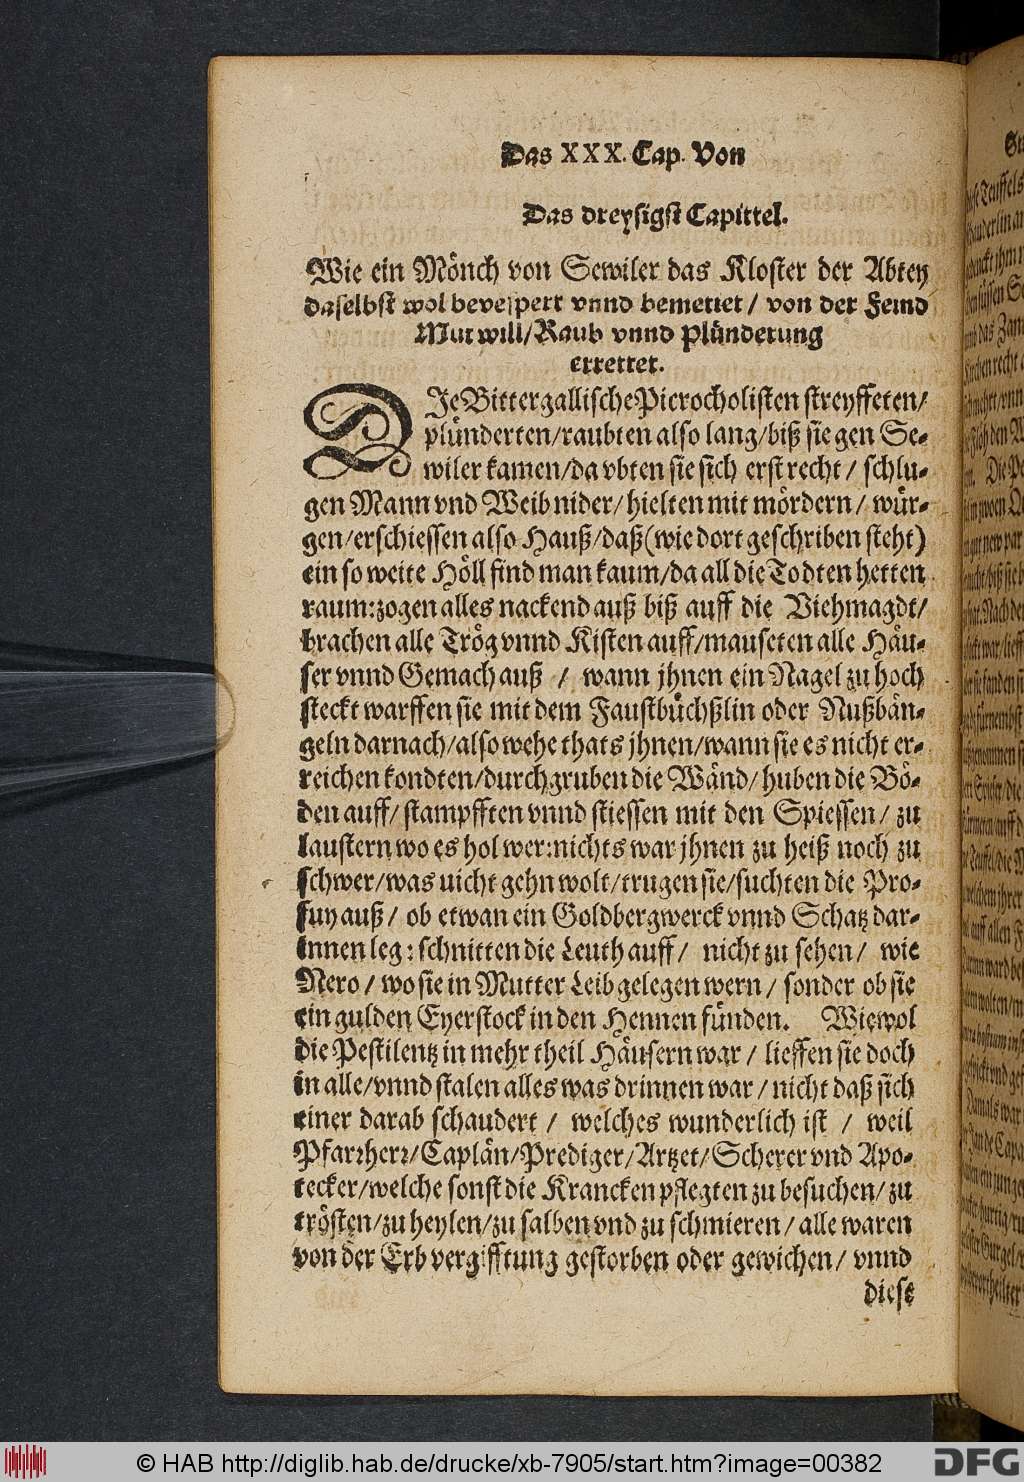 Das XXX. Cap. Von
Das dreysigst Capittel.
Wie ein Mönch von Sewiler das Kloster der Abtey
daselbst wol bevespert vnnd bemettet / von der Feind
Mutwill / Raub vnnd plünderung
errettet.
DJe Bittergallische Picrocholisten streyffeten /
plünderten / raubten also lang / biß sie gen Se-
wiler kamen / da vbten sie sich erst recht / schlu-
gen Mann vnd Weib nider / hielten mit mördern / wür-
gen / erschiessen also Hauß / daß (wie dort geschriben steht)
ein so weite Höll find man kaum / da all die Todten hetten
raum: zogen alles nackend auß biß auff die Viehmagdt /
brachen alle Trög vnnd Kisten auff / mauseten alle Häu-
ser vnnd Gemach auß / wann jhnen ein Nagel zu hoch
steckt warffen sie mit dem Faustbüchßlin oder Nußbän-
geln darnach / also wehe thats jhnen / wann sie es nicht er-
reichen kondten / durchgruben die Wänd / huben die Bö-
den auff / stampfften vnnd stiessen mit den Spiessen / zu
laustern wo es hol wer: nichts war jhnen zu heiß noch zu
schwer / was uicht gehn wolt / trugen sie / suchten die Pro-
fuy auß / ob etwan ein Goldbergwerck vnnd Schatz dar-
innen leg: schnitten die Leuth auff / nicht zu sehen / wie
Nero / wo sie in Mutter Leib gelegen wern / sonder ob sie
ein gulden Eyerstock in den Hennen fünden. Wiewol
die Pestilentz in mehr theil Häusern war / lieffen sie doch
in alle / vnnd stalen alles was drinnen war / nicht daß sich
einer darab schaudert / welches wunderlich ist / weil
Pfarꝛherꝛ / Caplän / Prediger / Artzet / Scherer vnd Apo-
tecker / welche sonst die Krancken pflegten zu besuchen / zu
trösten / zu heylen / zu salben vnd zu schmieren / alle waren
von der Erb vergifftung gestorben oder gewichen / vnnd
diese
© HAB http://diglib.hab.de/drucke/xb-7905/start.htm?image=00382
DFG